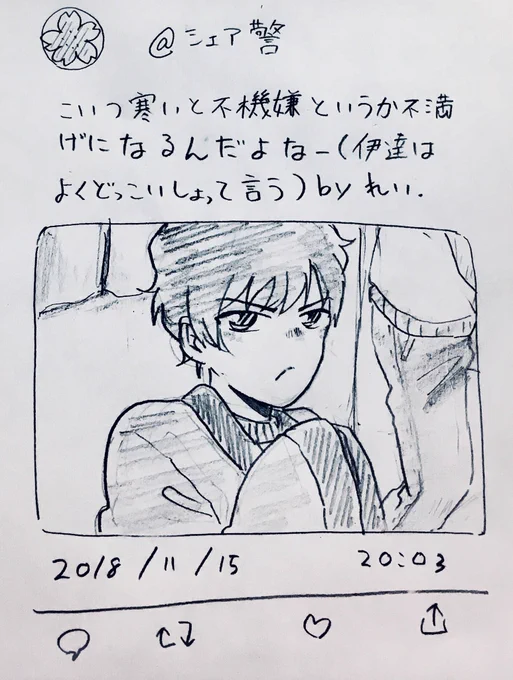 @シェア警
こいつ寒いと不機嫌というか不満
げになるんだよなー(伊達は
よくどっこいしょって言う)by れい.
2018/11/15 20:03